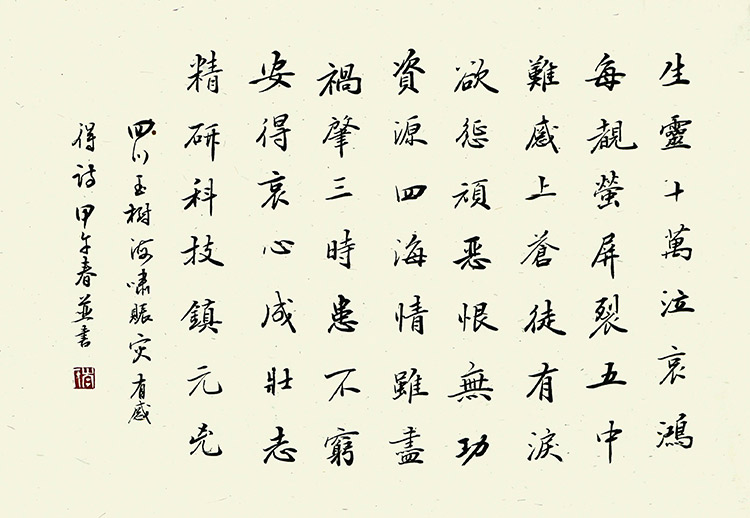 生靈十萬泣哀鴻
每覩螢屏裂五中
難感上蒼徒有淚
欲懲頑惡恨無功
資源四海情雖盡
禍肇三時患不窮
安得哀心成壯志
精研科技鎮元兇
四川玉樹海嘯賑災有感
得詩甲午春並書